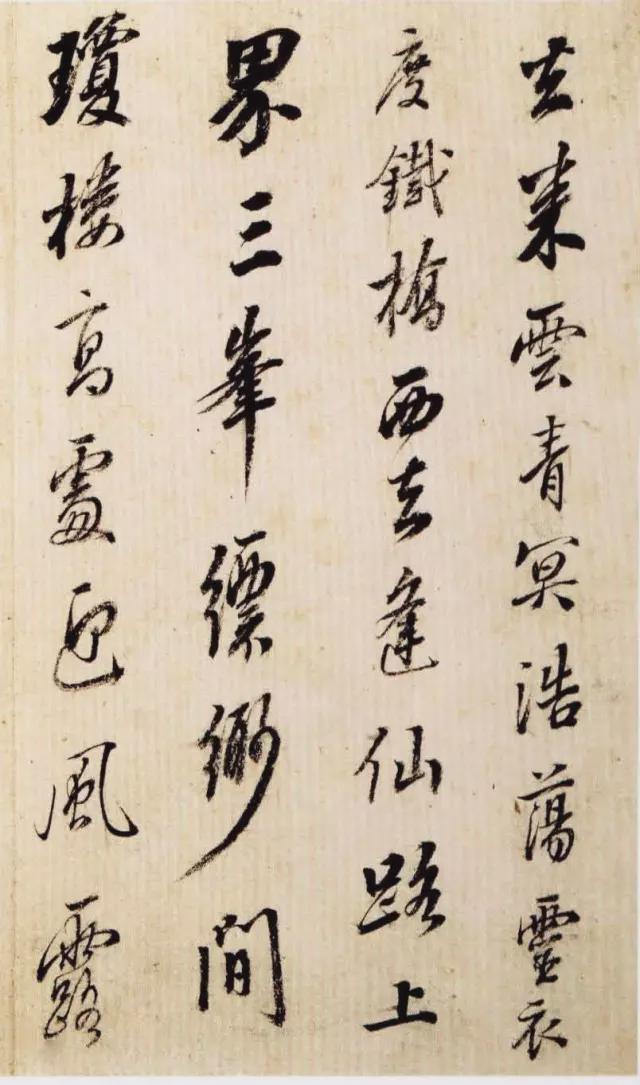 去来雲青冥浩蕩靈衣
度鐵橋西去逢仙路上
界三峯縹緲間
瓊樓高處迎風露